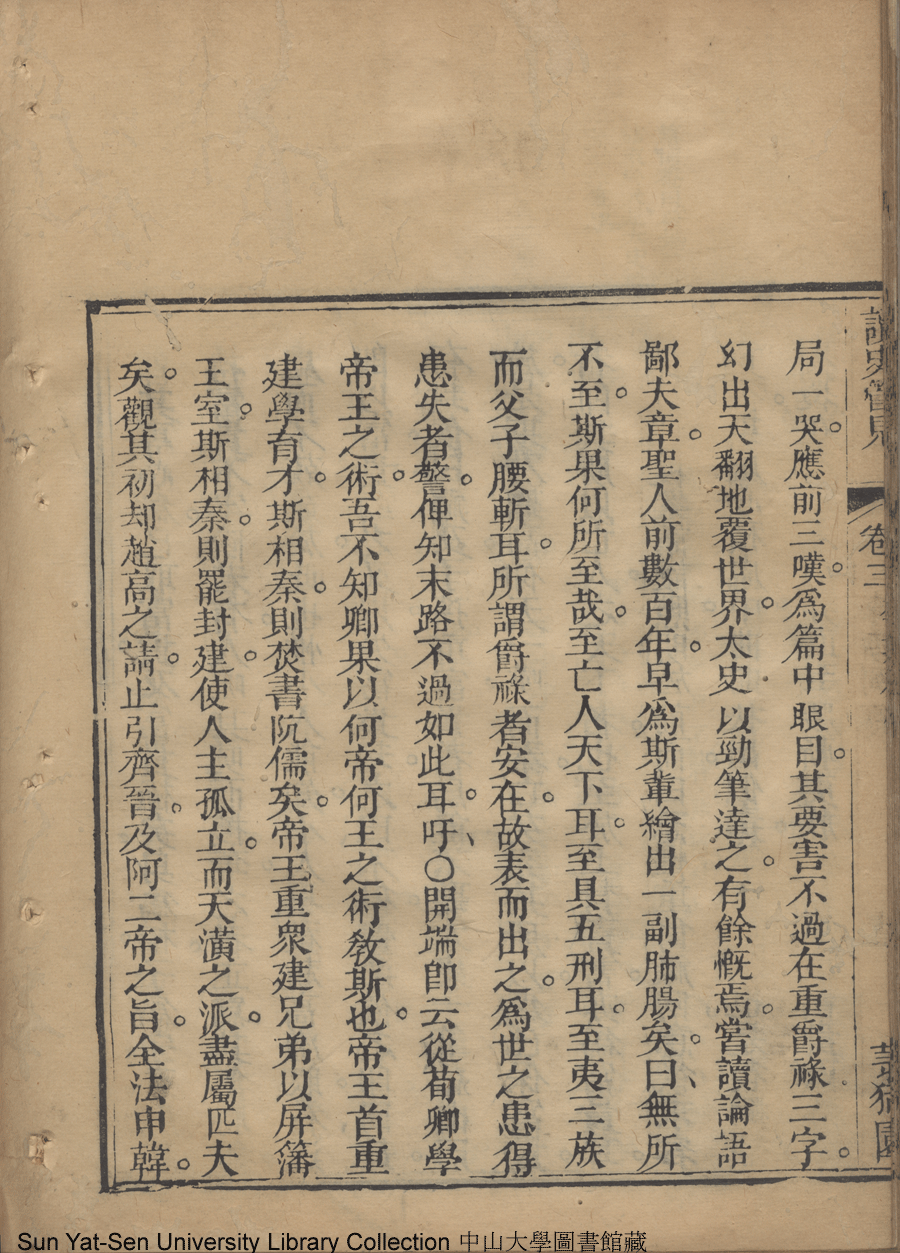 讀史管見
卷三
局一哭應前三嘆爲篇中眼目其要害不過在重爵祿三字
幻出天翻地覆世界太史以勁筆達之有餘慨焉嘗讀論語
鄙夫章聖人前數百年早爲斯輩繪出一副肺腸矣曰無所
不至斯果何所至哉至亡人天下耳至具五刑耳至夷三族
而父子腰斬耳所謂爵祿者安在故表而出之爲世之患得
患失者警俾知末路不過如此耳吁○開端卽云從荀卿學
帝王之術吾不知卿果以何帝何王之術敎斯也帝王首重
建學育才斯相秦則焚書阬儒矣帝王重衆建兄弟以屏籓
王室斯相秦則罷封建使人主孤立而天潢之派盡屬匹夫
矣觀其初却趙高之請止引齊晉及阿二帝之旨全法申韓
Sun Yat-Sen University Library Collection 中山大學圖書館藏